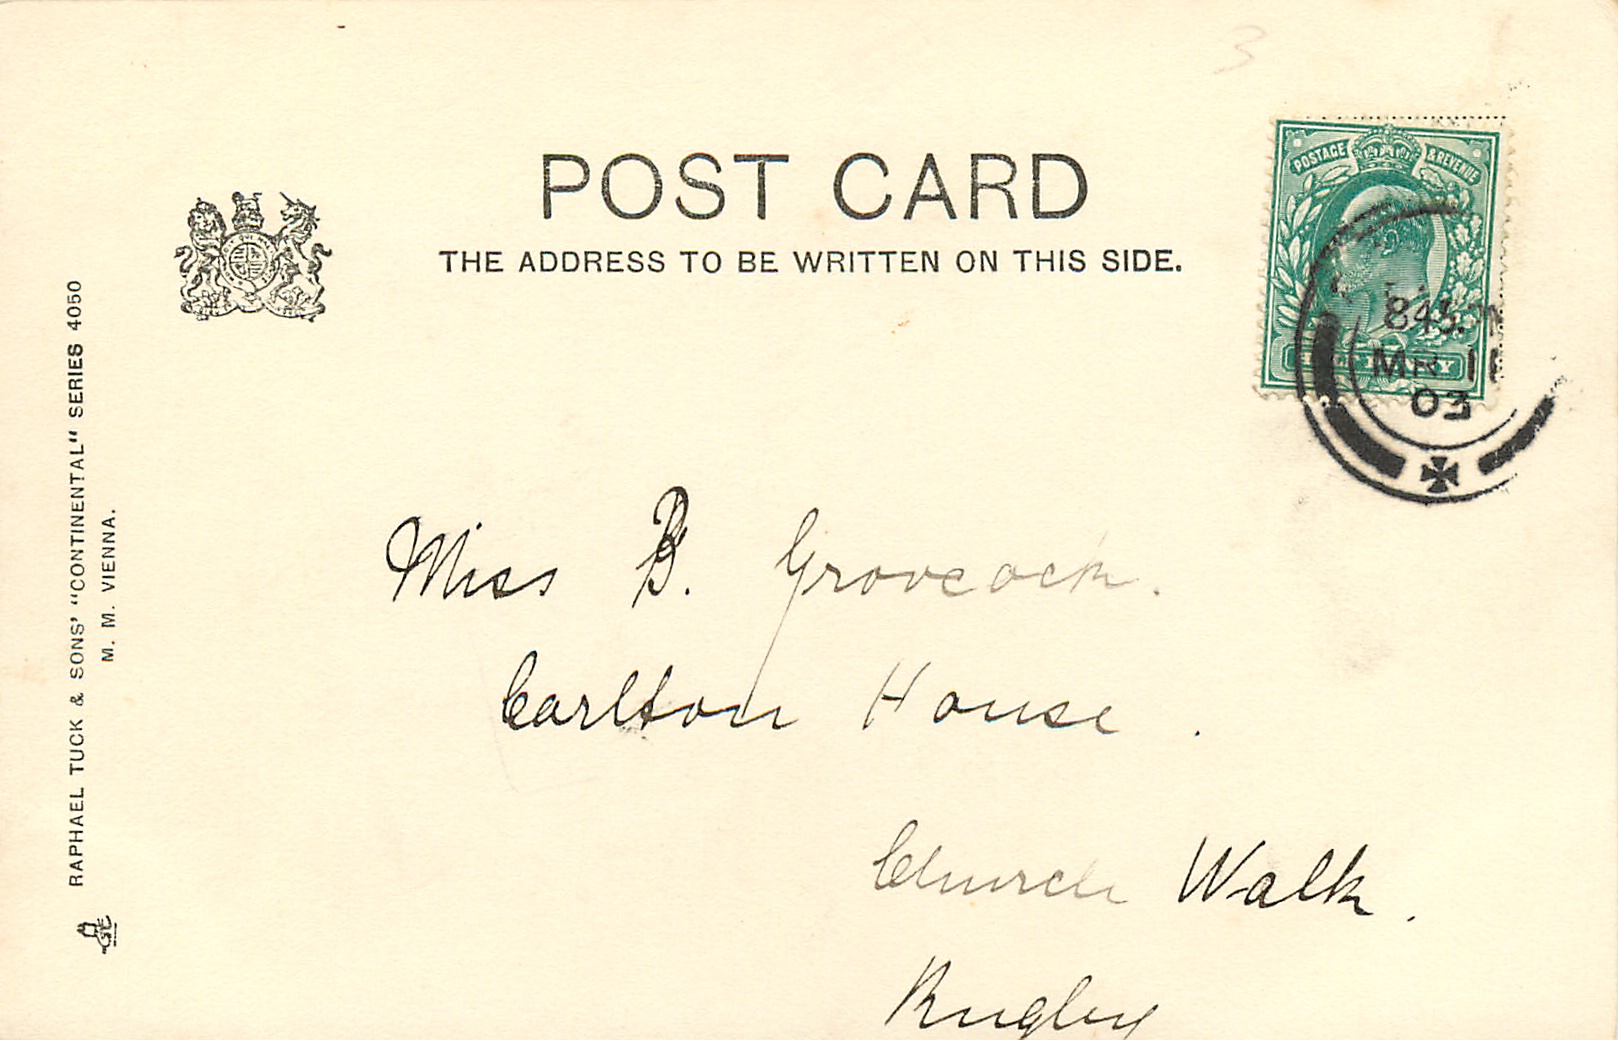 3
POST CARD
THE ADDRESS TO BE WRITTEN ON THIS SIDE.
POSTAGE & REVENUE
845
MR 11
03
Miss B. Grovcock.
Carlton House.
Church Walk.
Rugby
RAPHAEL TUCK & SONS' "CONTINENTAL" SERIES 4050
M. M. VIENNA.